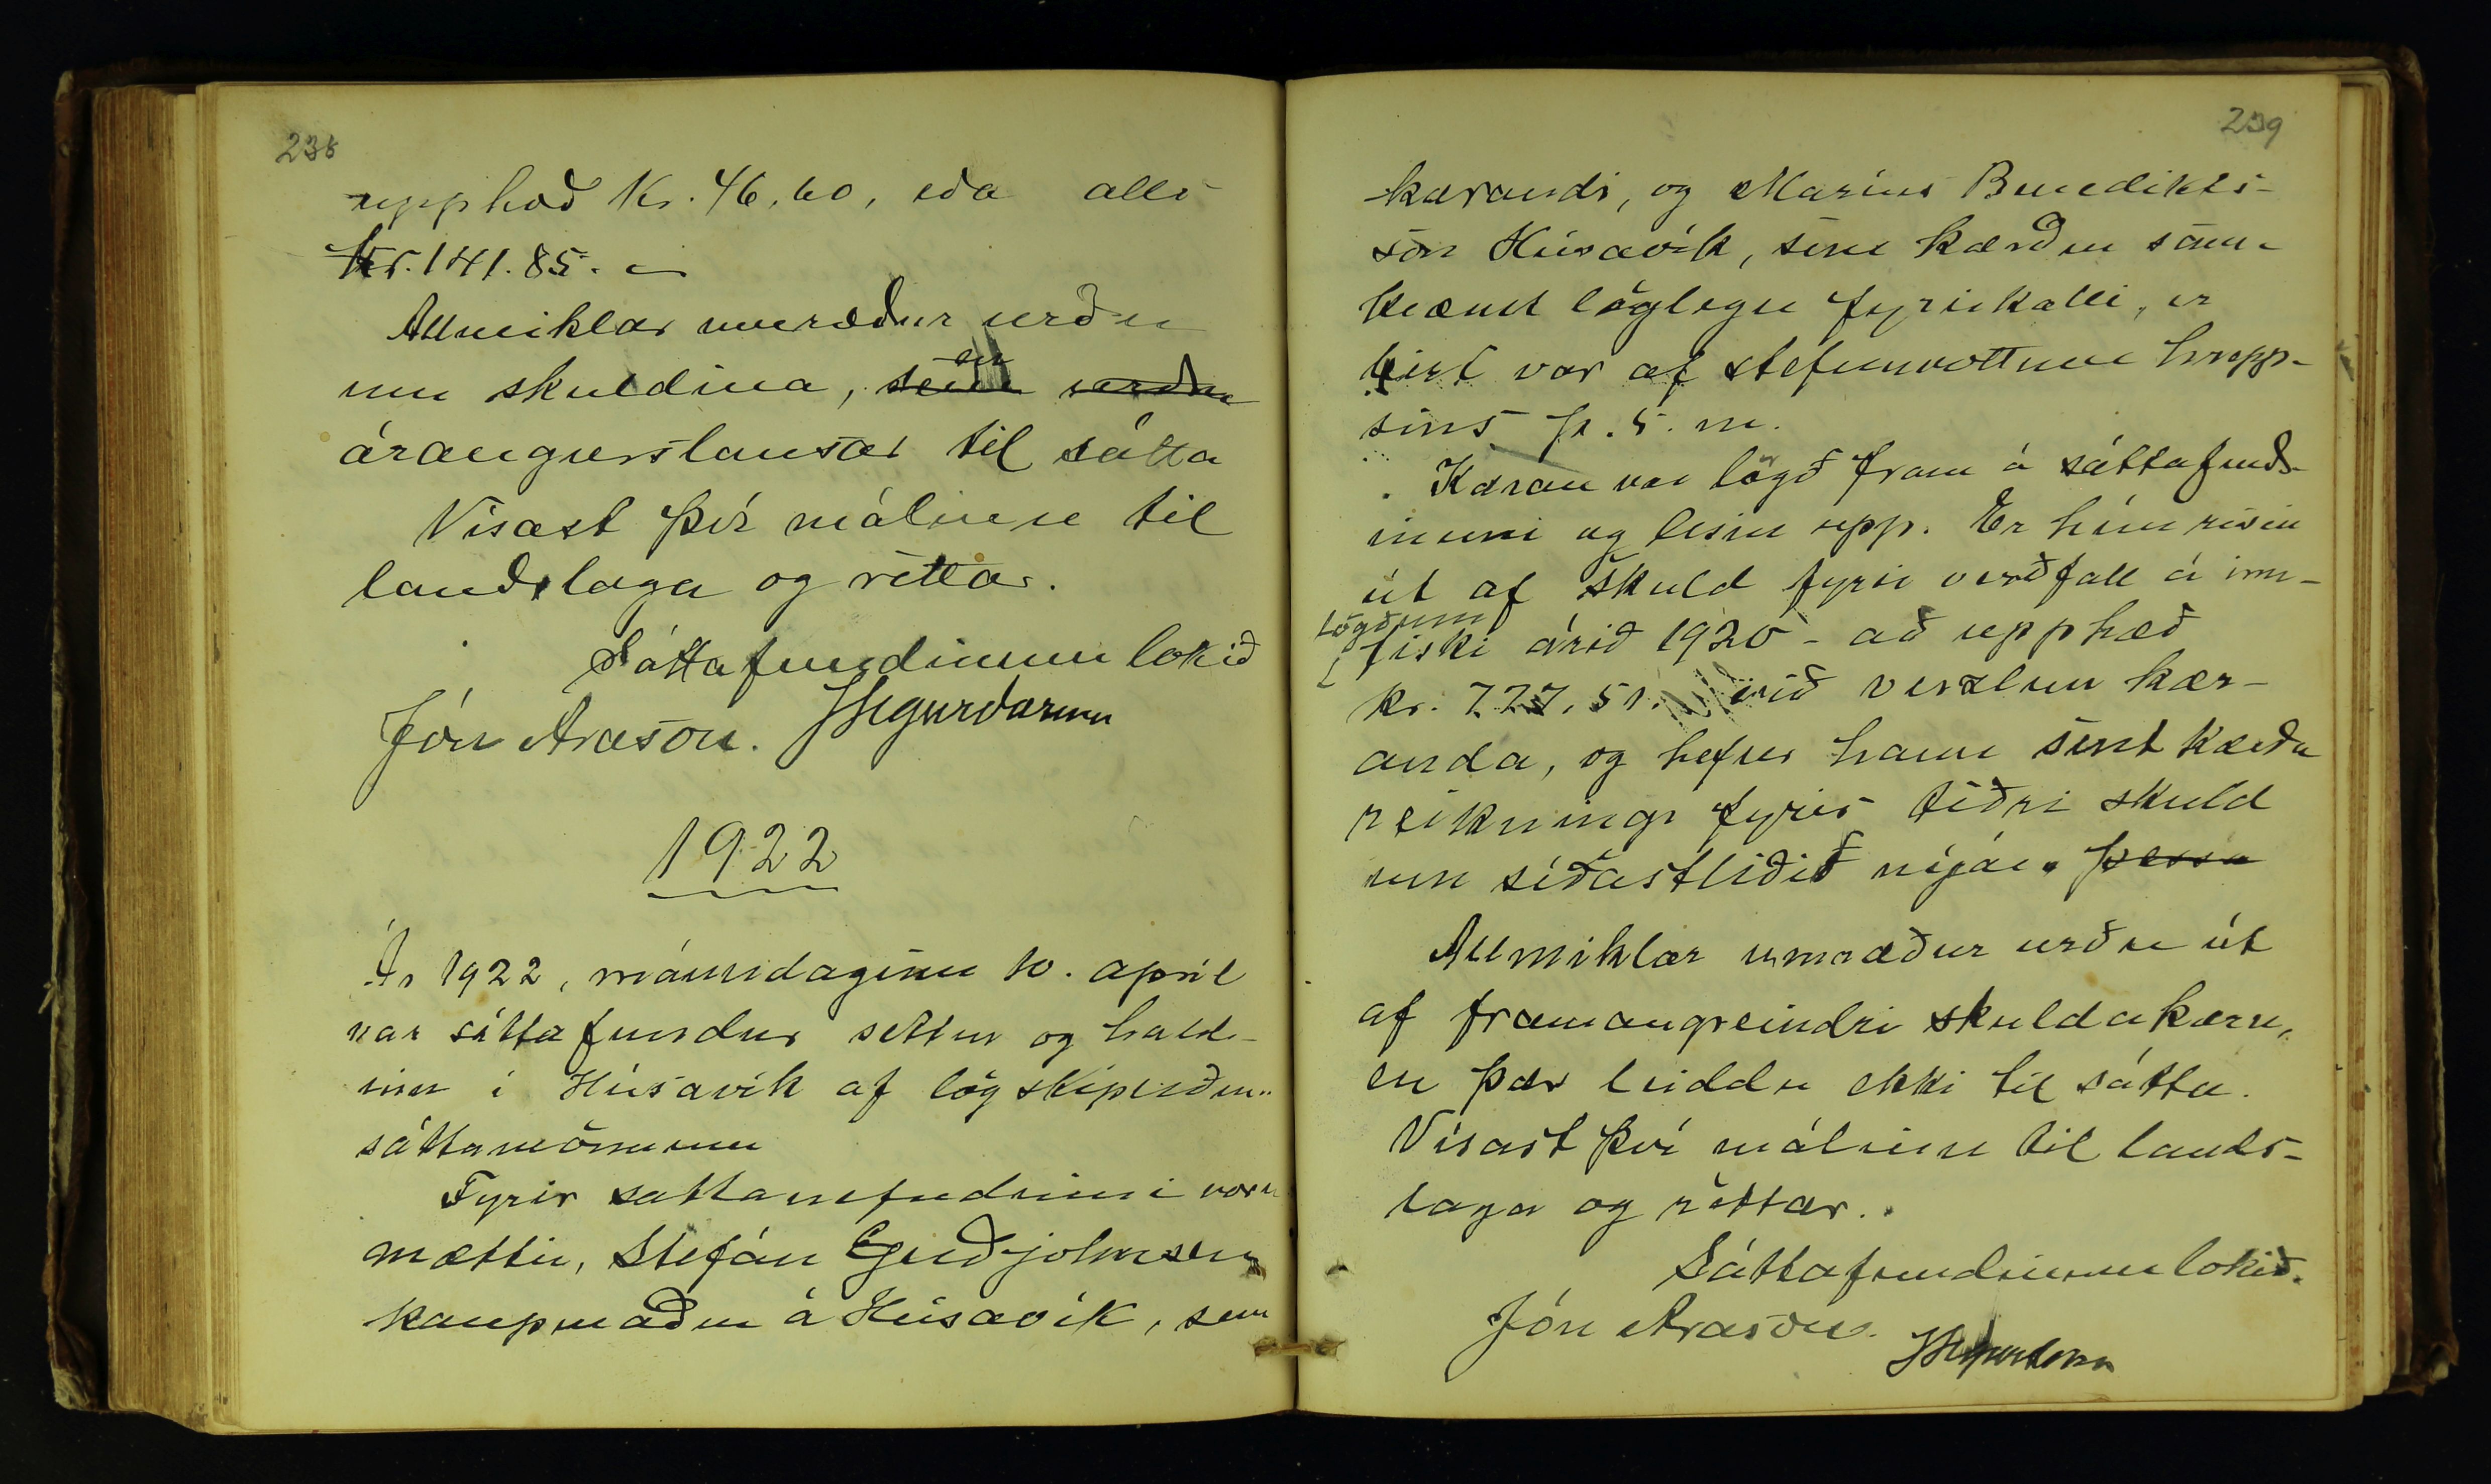 238
upphæð Kr. 46,60, eða alls
Kr. 141.85.
Allmiklar umræður urðu
um skuldina, sem urðu
en
árangurslausar til sátta
Vísast því málinu til
landslaga og réttar.
Sáttafundinum lokið
Jón Arason. JSigurdarson
1922
Ár 1922, mánudaginn 10. apríl
var sáttafundur settur og hald-
inn í Húsavík af lögskipuðum
sáttamönnum
Fyrir sattanefndinni voru
mættir, Stefán Guðjohnsen
kaupmaður á Húsavík, sem
239
kærandi, og Maríus Benedikts-
son Húsavík, sem kærður sam-
kvæmt löglegu fyrirkalli, er
birt var af stefnuvottum hrepp-
sins þ. 5. m.
Kæran var lögð fram á sáttafund-
inum og lesin upp. Er hún risin
út af skuld fyrir verðfall á inn-
lögðum
fiski árið 1920 - að upphæð
kr. 727,51. við verzlun kær-
anda, og hefur hann sent kærða
reiknings fyrir tíðri skuld
um síðastliðið nýár. þessa
Allmiklar umræður urðu út
af framangreindri skuldakæru,
en þær leiddu ekki til sátta.
Vísast því málinu til lands-
laga og réttar.
Sáttafundinum lokið.
Jón Arason. JSigurdarson